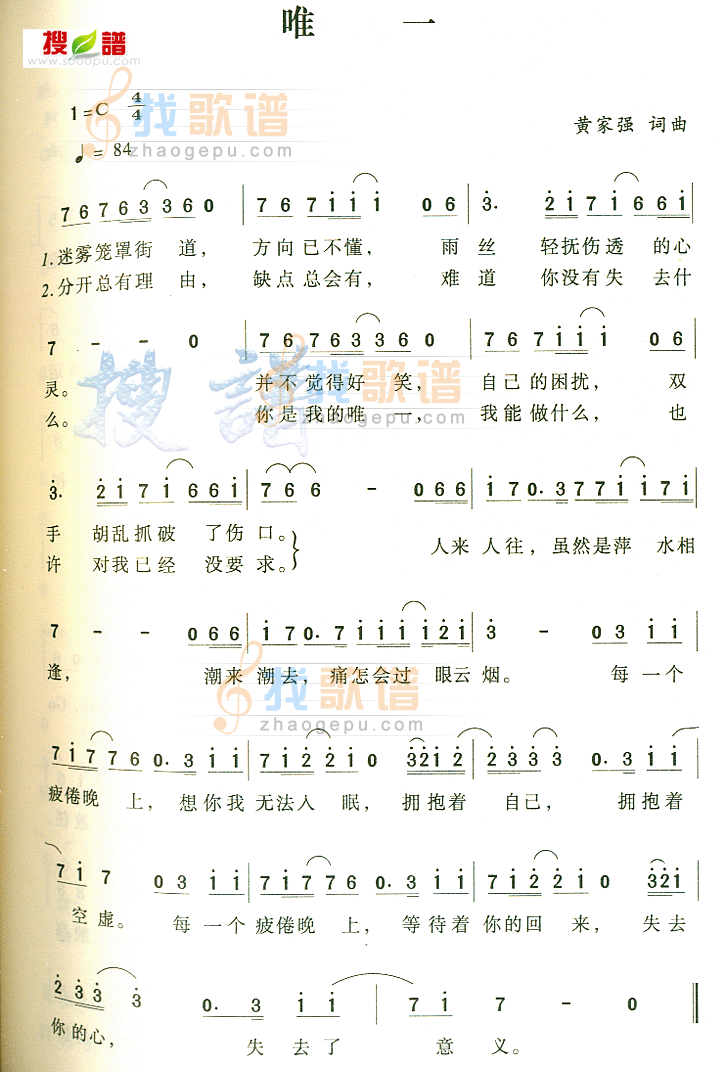 唯 一
搜谱
www.sooopu.com
1=C 4/4
找歌谱
zhaogepu.com
黄家强 词曲
♩= 84
7 6 7 6 3 3 6 0 | 7 6 7 i i i 0 6 | 3. 2 i 7 i 6 6 i
1.迷雾笼罩街 道， 方向已不懂， 雨 丝 轻抚伤透 的心
2.分开总有理 由， 缺点总会有， 难 道 你没有失 去什
7 - - 0 | 7 6 7 6 3 3 6 0 | 7 6 7 i i i 0 6
灵。 并不觉得好 笑， 自己的困扰， 双
么。 你是我的唯 一， 我能做什么， 也
搜谱
找歌谱
zhaogepu.com
3. 2 i 7 i 6 6 i | 7 6 6 - 0 6 6 | i 7 0. 3 7 7 i i 7 i
手 胡乱抓破 了伤口。
许 对我已经 没要求。
人来 人往，虽然是萍 水相
7 - - 0 6 6 | i 7 0. 7 i i i i 2 i | 3 - 0 3 i i
逢， 潮来 潮去，痛怎会过 眼云 烟。 每一个
找歌谱
zhaogepu.com
7 i 7 7 6 0. 3 i i | 7 i 2 2 i 0 3 2 i 2 | 2 3 3 3 0. 3 i i
疲倦晚 上，想你我 无法入 眠，拥抱着 自己， 拥抱着
7 i 7 0 3 i i | 7 i 7 7 6 0. 3 i i | 7 i 2 2 i 0 3 2 i
空虚。 每一个 疲倦晚 上，等待着 你的回 来，失去
2 3 3 3 3 0. 3 i i | i 7 i 7 - 0
你的心， 失去了 意义。